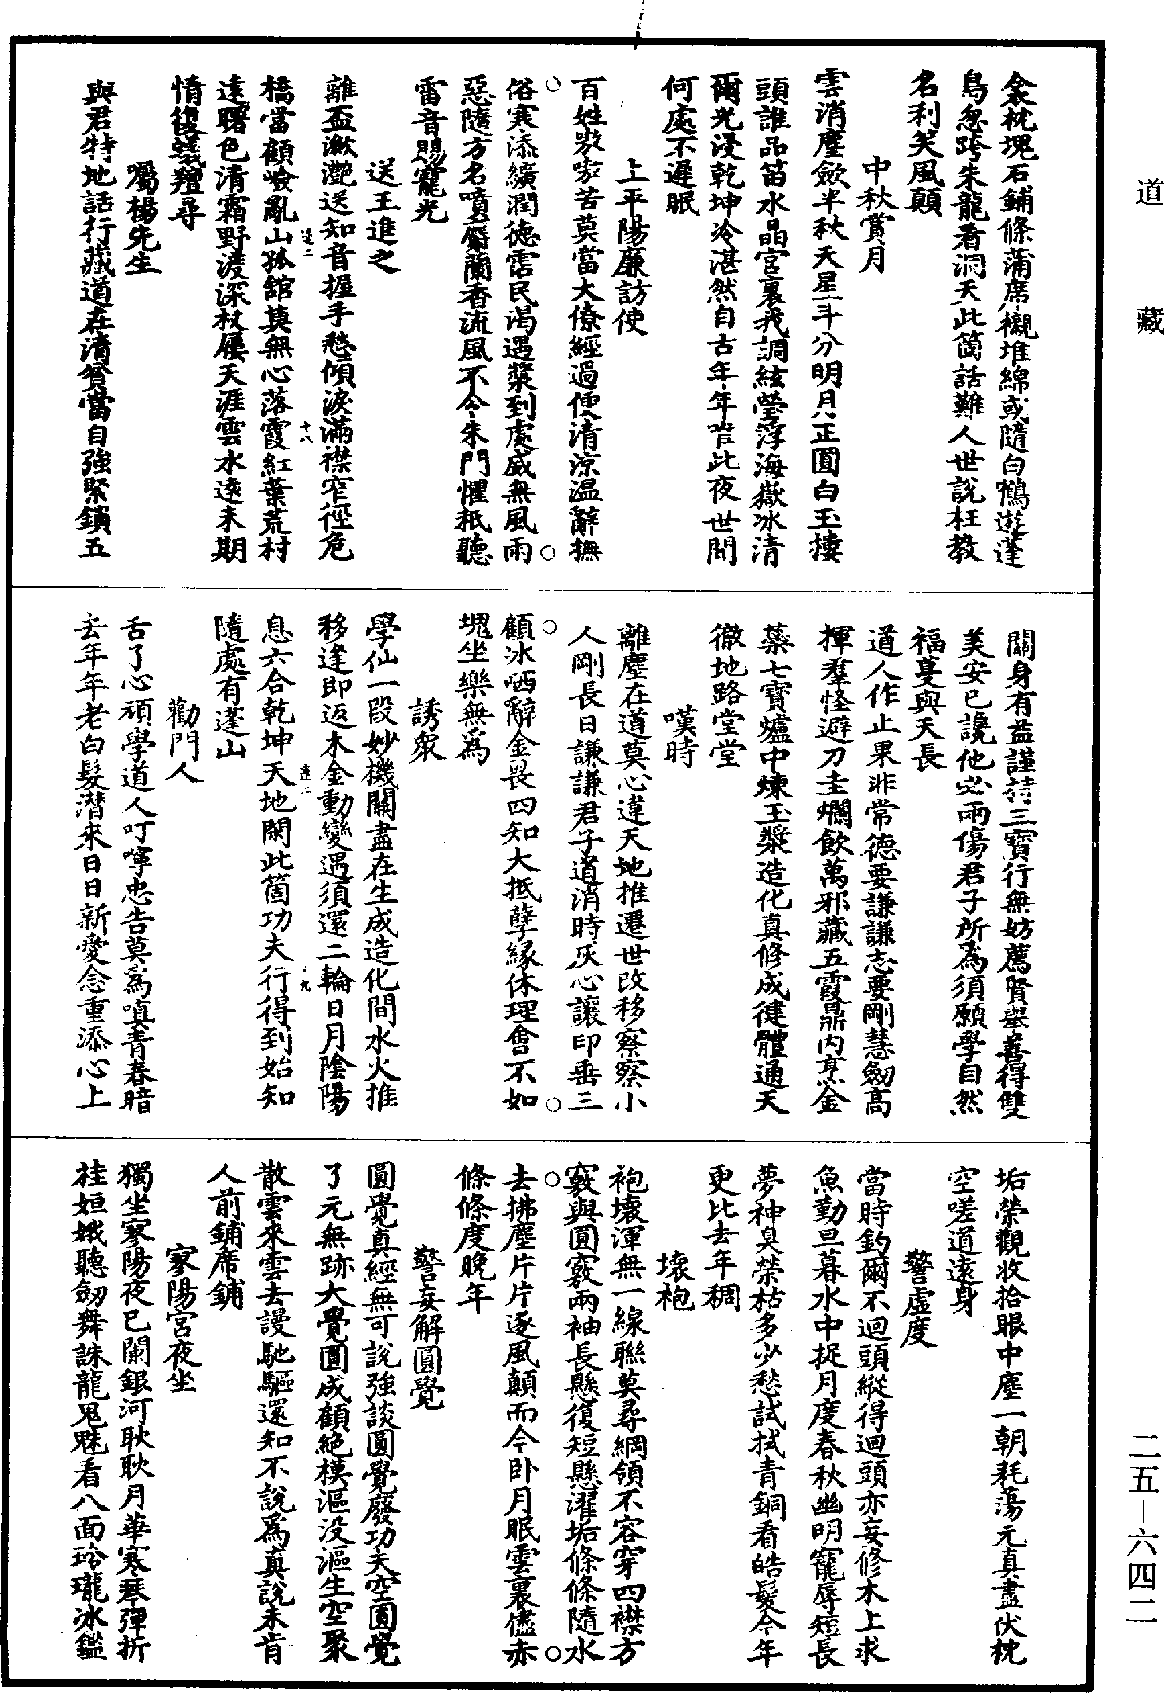 道藏
衾枕塊石鋪條蒲席襯堆綿或隨白鶴遊蓬
島忽跨朱龍看洞天此箇話難人世說枉教
名利笑風顛
中秋賞月
雲消塵斂半秋天星斗分明月正圓白玉樓
頭誰品笛水晶宮裏我調絃瑩浮海嶽冰清
爾光浸乾坤冷湛然自古年年皆此夜世間
何處不遲眠
上平陽廉訪使
百姓嗷嗷苦莫當大僚經過便清涼温辭撫
俗寒添纊潤德霑民渴遇漿到處威無風雨
惡隨方名噴麝蘭香流風不令朱門懼祇聽
雷音賜寵光
送王進之
離盃瀲灩送知音握手愁傾淚滿襟窄徑危
橋當顧嶮亂山孤舘莫無心落霞紅葉荒村
遠曙色清霜野渡深杖屨天涯雲水遠未期
情復蟻羶尋
囑楊先生
與君特地話行藏道在清貧當自強緊鎖五
關身有益謹持三寶行無妨薦賢舉善得雙
美安已讒他必兩傷君子所為須願學自然
福蔓與天長
道人作止果非常德要謙謙志要剛慧劒高
揮羣怪避刀圭爛飲萬邪藏五霞鼎內烹金
蘂七寶爐中煉玉漿造化真修成健體通天
徹地路堂堂
嘆時
離塵在道莫心違天地推遷世改移察察小
人剛長日謙謙君子道消時灰心讓印垂三
顧冰哂辭金畏四知大抵孽緣休理會不如
塊坐樂無為
誘衆
學仙一段妙機關盡在生成造化間水火推
移逢即返木金動變遇須還二輪日月陰陽
息六合乾坤天地閑此箇功夫行得到始知
隨處有蓬山
勸門人
舌了心頑學道人叮嚀忠告莫為嗔青春暗
去年年老白髮潛來日日新愛念重添心上
垢榮觀收拾眼中塵一朝耗蕩元真盡伏枕
空嗟道遠身
警虛度
當時釣爾不迴頭縱得迴頭亦妄修木上求
魚勤旦暮水中捉月度春秋幽明寵辱短長
夢神臭榮枯多少愁試拭青銅看皓髮今年
更比去年稠
壞袍
袍壞渾無一線聯莫尋綱領不容穿四襟方
竅與圓竅兩袖長懸復短懸濯垢條條隨水
去拂塵片片逐風顛而今卧月眠雲裏儘赤
條條度晚年
警妄解圓覺
圓覺真經無可說強談圓覺廢功夫空圓覺
了元無跡大覺圓成顧絕模漚没漚生空聚
散雲來雲去謾馳驅還知不說為真說未肯
人前鋪席鋪
寥陽宮夜坐
獨坐寥陽夜已闌銀河耿耿月華寒琴彈折
桂姮娥聽劒舞誅龍鬼魅看八面玲瓏冰鑑
二五—六四二